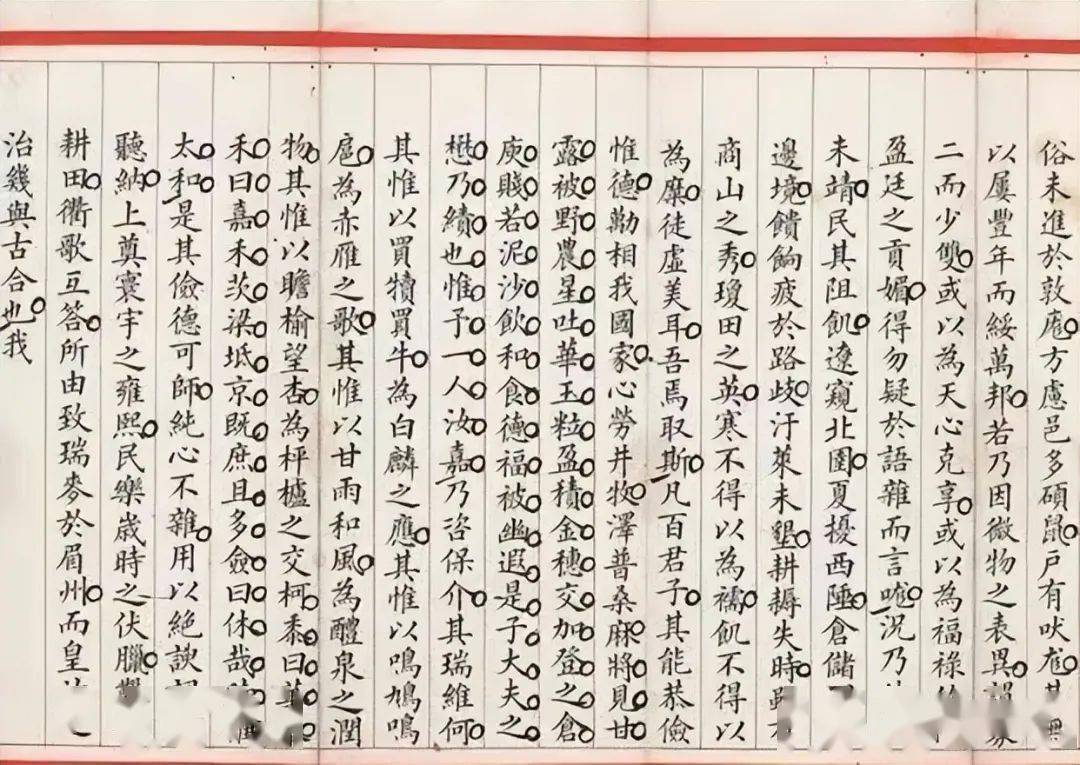 俗未進於敦庬方慮邑多碩鼠戶有吠尨其
以屢豐年而綏萬邦若乃因微物之表異謂
二而少雙或以為天心克享或以為福祿
盈廷之貢媚得勿疑於語雜而言哤況乃
未靖民其阻飢遼窺北圉夏擾西陲倉儲
邊境饋餉疲於路歧汙萊未墾耕耨失時
商山之秀瓊田之英寒不得以為襦飢不得以
為糜徒虛美耳吾焉取斯凡百君子其能恭儉
惟德勱相我國家心勞井牧澤普桑麻將見甘
露被野農星吐華玉粒盈積金穗交加登之倉
庾賤若泥沙飲和食德福被幽遐是子大夫之
懋乃績也惟予一人汝嘉乃咨保介其瑞維何
其惟以買犢買牛為白麟之應其惟以鳴鳩鳴
扈為赤雁之歌其惟以甘雨和風為醴泉之潤
物其惟以瞻榆望杏為枰櫨之交柯黍曰其
禾曰嘉禾茨梁坻京既庶且多僉曰休哉
太和是其儉德可師純心不雜用以絕諛
聽納上奠寰宇之雍熙民樂歲時之伏臘
耕田衢歌互答所由致瑞麥於眉州而皇
治幾與古合也我